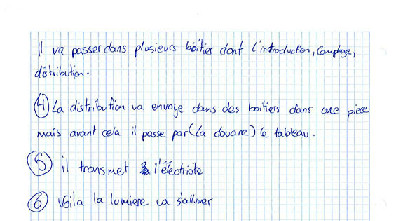 il va passer dans plusieurs boîtier dont l'introduction, Comptage,
distribution.
④ La distribution va envoyé dans des boitiers dans une piece
mais avant cela il passe par (La douane) le tableau.
⑤ il transmet l'électricité
⑥ Voila la lumiere va s'allumer